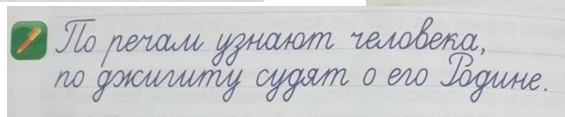 По речам узнают человека,
по джигиту судят о его Родине.